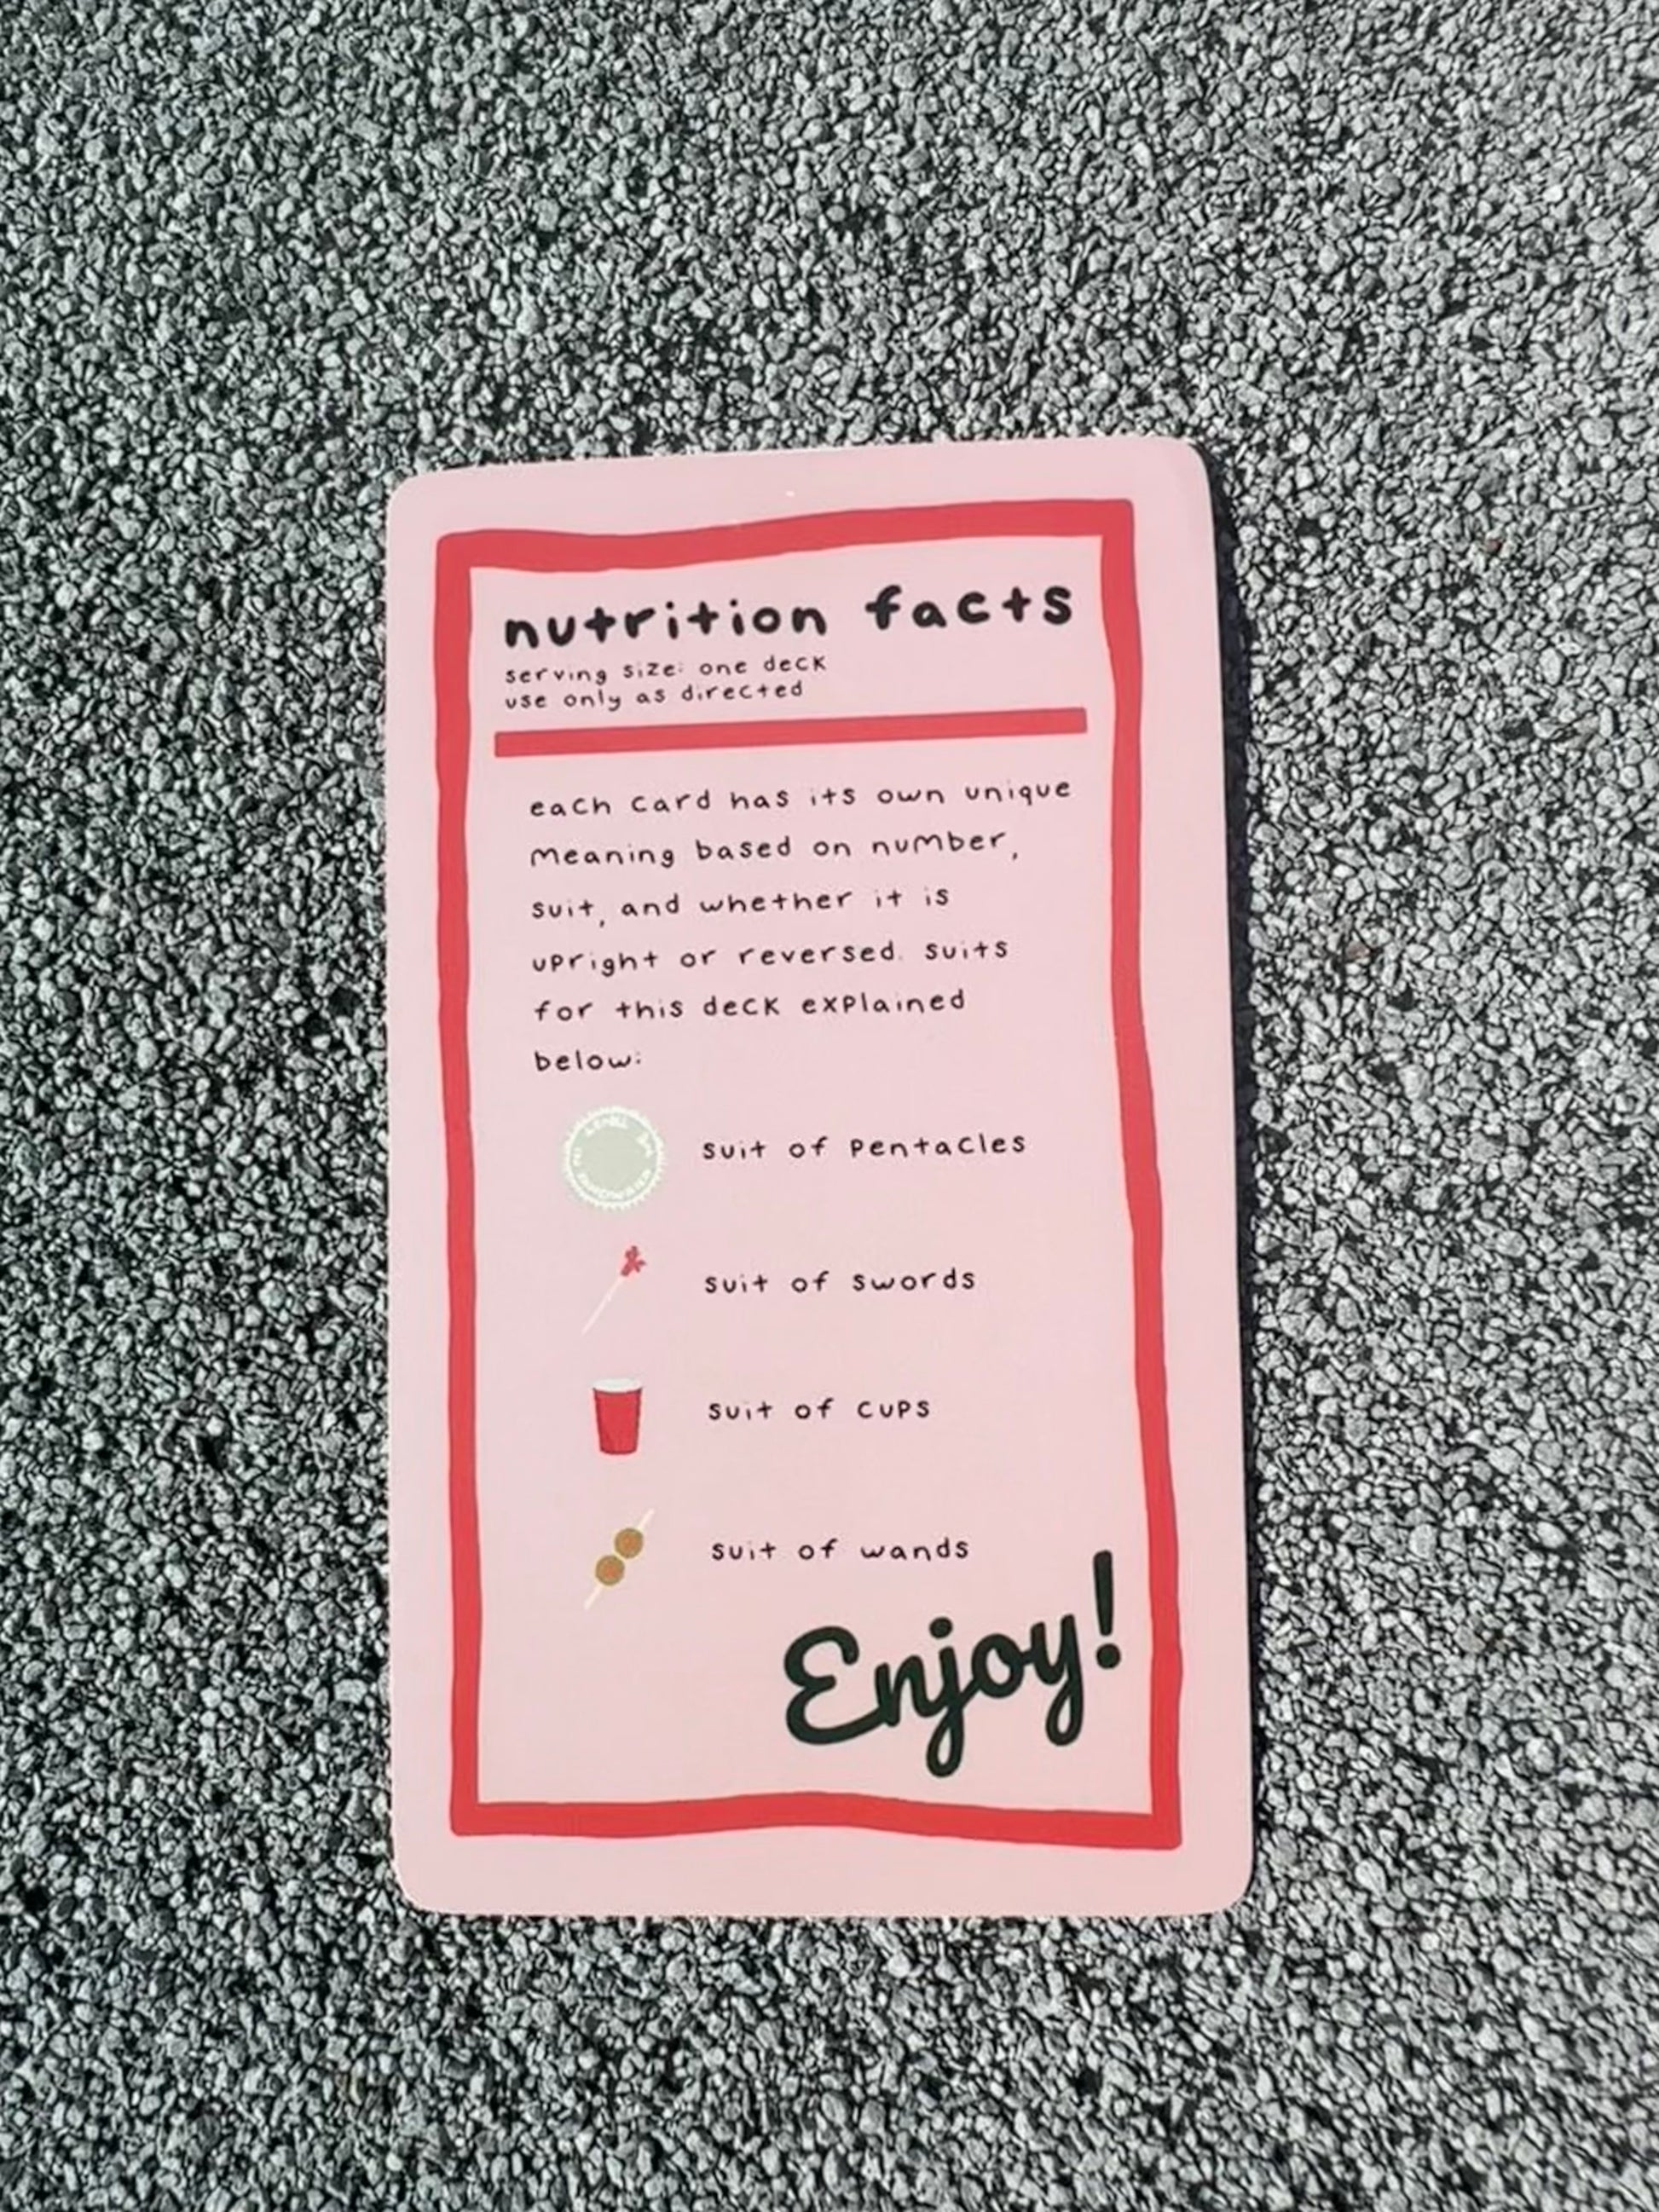 nutrition facts
serving size: one deck
use only as directed
each card has its own unique
meaning based on number,
suit, and whether it is
upright or reversed. suits
for this deck explained
below:
suit of pentacles
suit of swords
suit of cups
suit of wands
Enjoy!